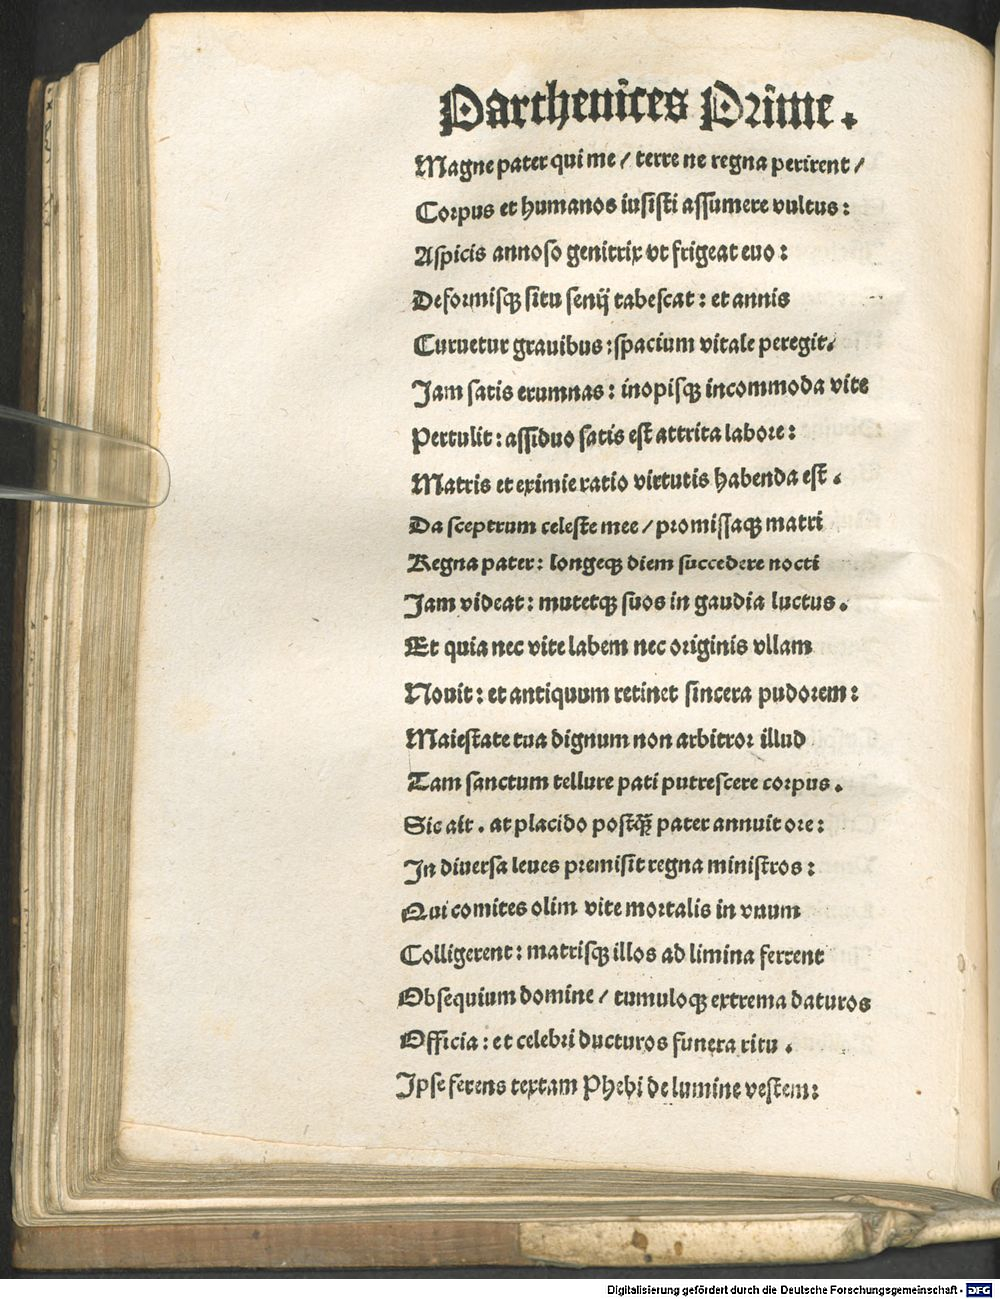 Parthenices Prime.
Magne pater qui me / terre ne regna perirent /
Corpus et humanos iusisti assumere vultus:
Aspicis annoso genitrix vt frigeat euo:
Deformisqꝫ situ senij tabescat: et annis
Curuetur grauibus: spacium vitale peregit.
Jam satis erumnas: inopisqꝫ incommoda vite
Pertulit: assiduo satis est attrita labore:
Matris et eximie ratio virtutis habenda est.
Da sceptrum celeste mee / promissaqꝫ matri
Regna pater: longeqꝫ diem succedere nocti
Jam videat: mutetqꝫ suos in gaudia luctus.
Et quia nec vite labem nec originis vllam
Nouit: et antiquum retinet sincera pudorem:
Maiestate tua dignum non arbitror illud
Tam sanctum tellure pati putrescere corpus.
Sic ait. at placido postqꝫ̄ pater annuit ore:
In diuersa leues premisit regna ministros:
Qui comites olim vite mortalis in vnum
Colligerent: matrisqꝫ illos ad limina ferrent
Obsequium domine / tumuloqꝫ extrema daturos
Officia: et celebri ducturos funera ritu.
Ipse ferens textam Phebi de lumine vestem:
Digitalisierung gefördert durch die Deutsche Forschungsgemeinschaft - DFG